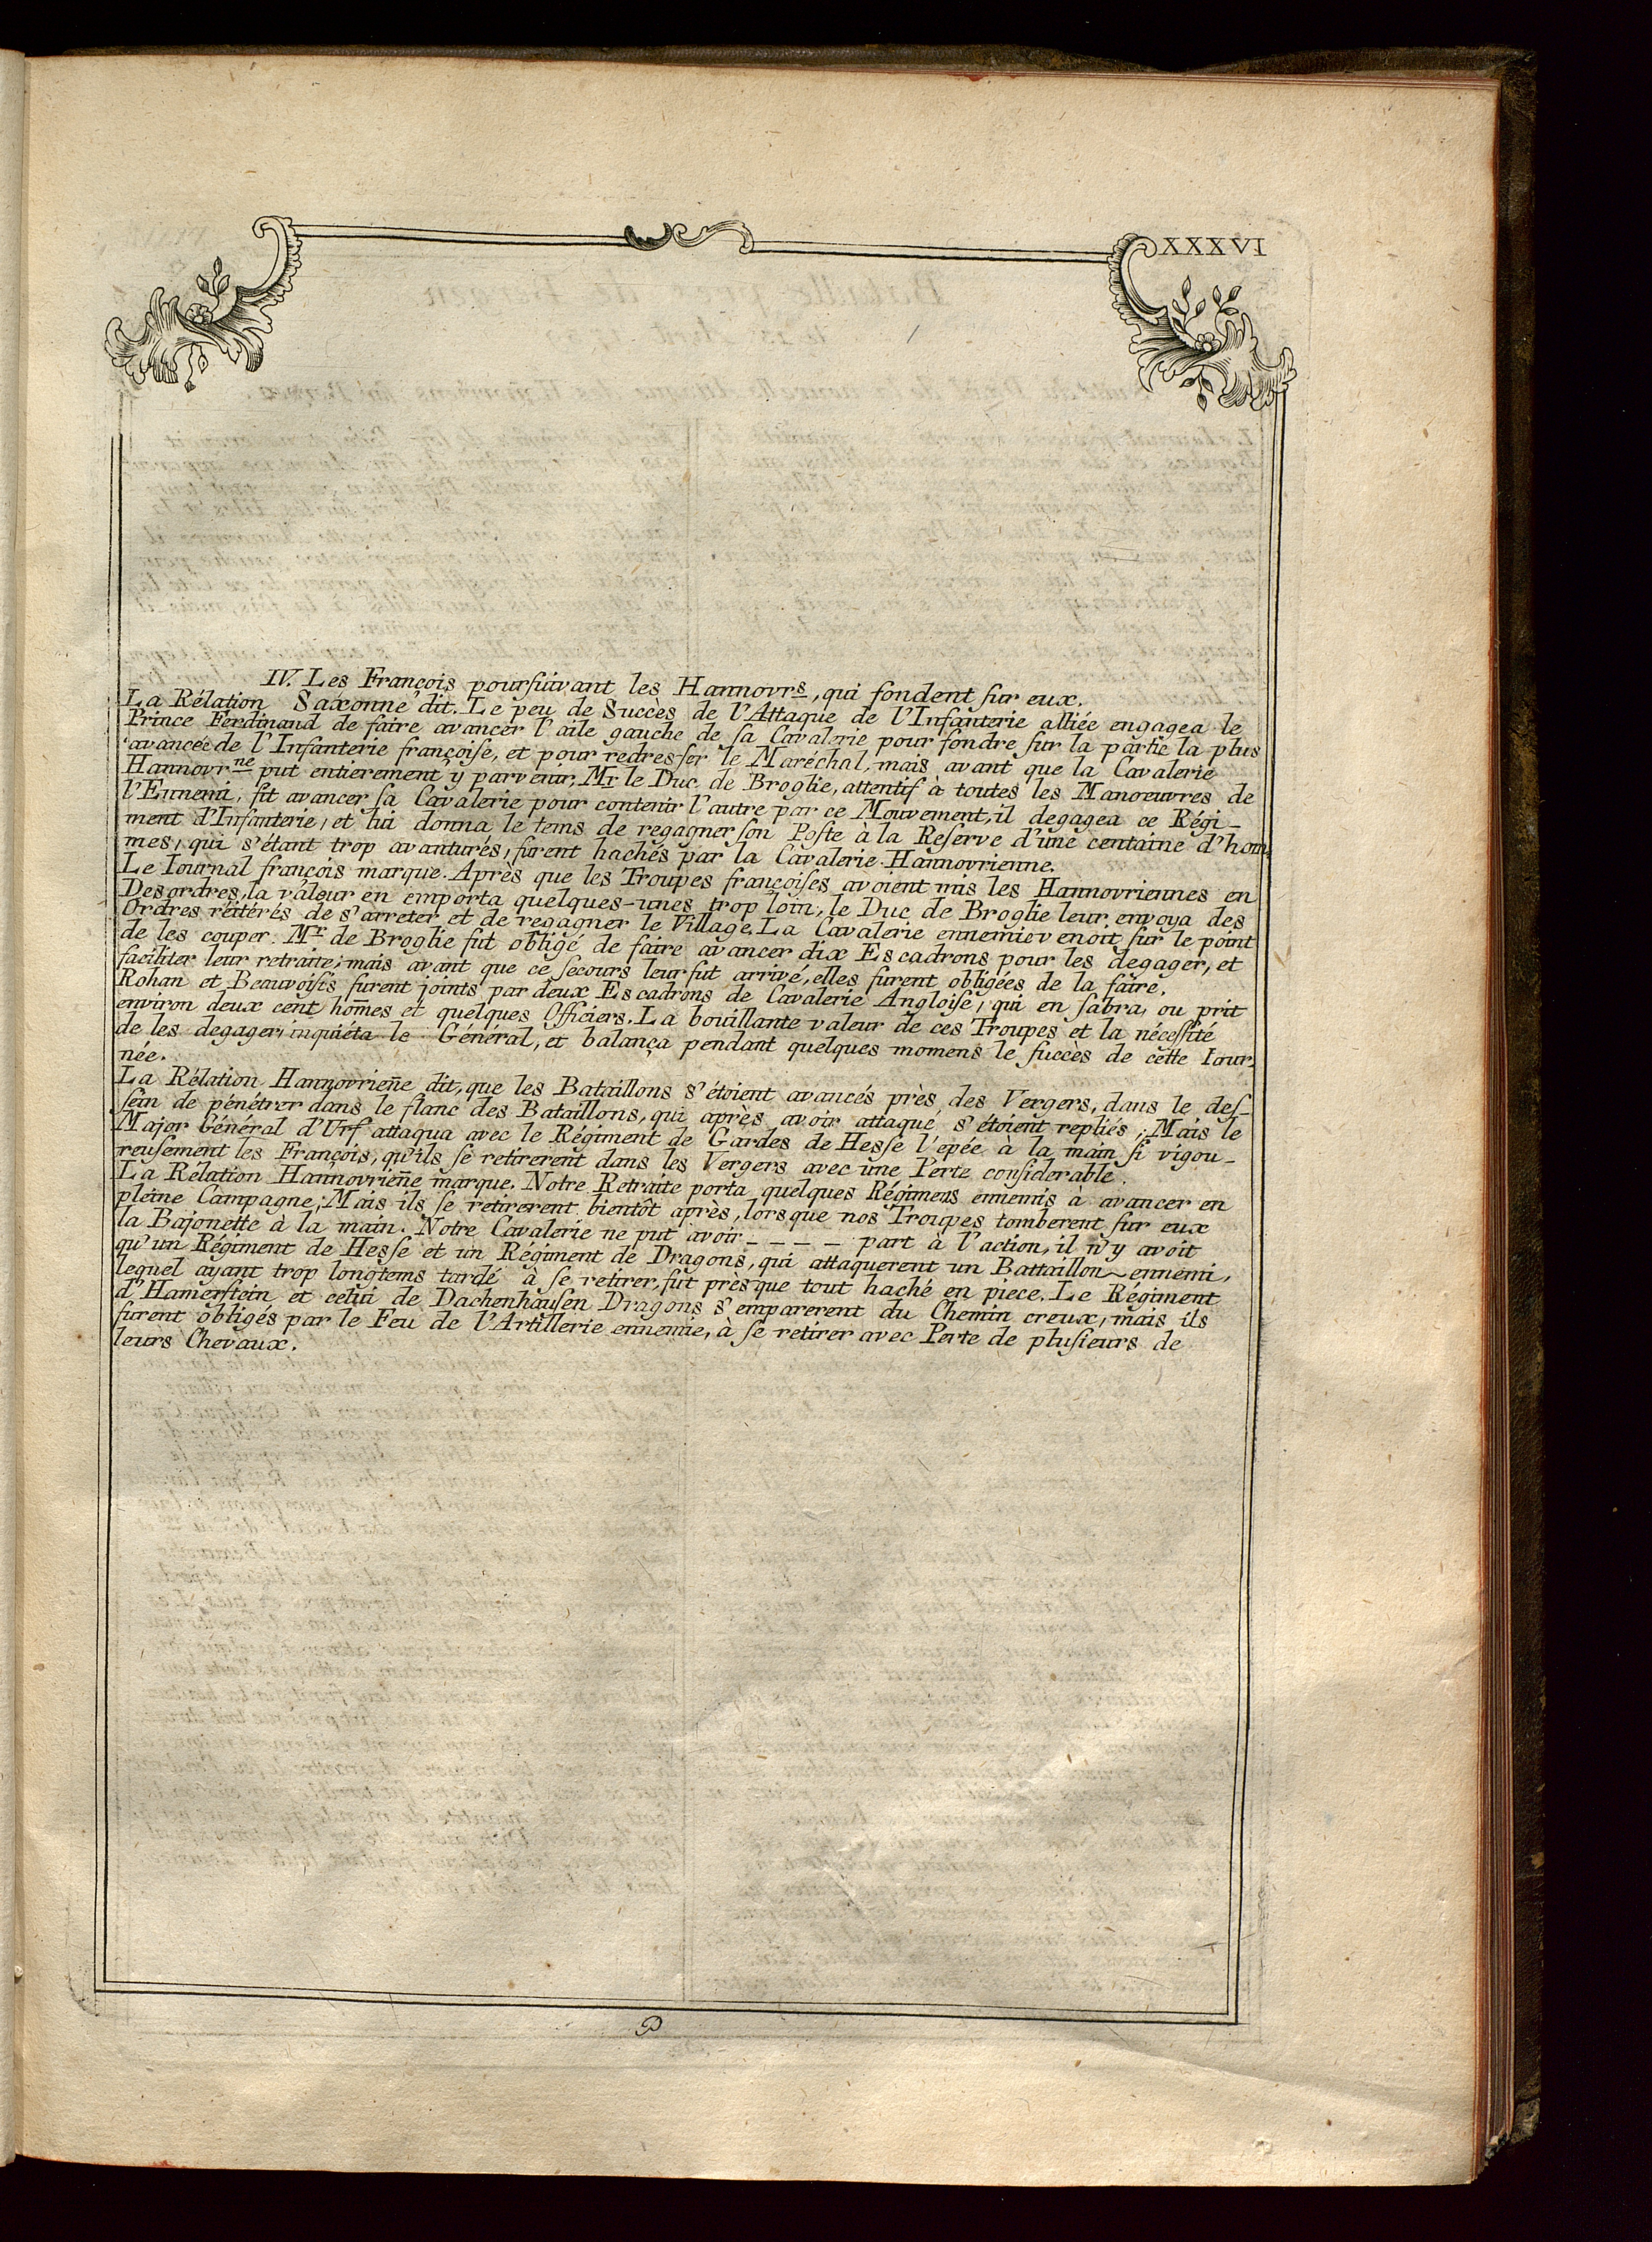 XXXVI
IV. Les François poursuivant les Hannovrs, qui fondent sur eux.
La Rélation Saxonne dit. Le peu de Succès de l'Attaque de l'Infanterie alliée engagea le
Prince Ferdinand de faire avancer l'aile gauche de sa Cavalerie pour fondre sur la partie la plus
avancée de l'Infanterie françoise, et pour redresser le Maréchal, mais avant que la Cavalerie
Hannovrne put entierement y parvenir, Mr le Duc de Broglie, attentif à toutes les Manoeuvres de
l'Ennemi, fit avancer sa Cavalerie pour contenir l'autre par ce Mouvement, il degagea ce Régi-
ment d'Infanterie, et lui donna le tems de regagner son Poste à la Reserve d'une centaine d'hom-
mes, qui s'étant trop avanturés, furent hachés par la Cavalerie Hannovrienne.
Le Iournal françois marque. Après que les Troupes françoises avoient mis les Hannovriennes en
Desordres, la valeur en emporta quelques-unes trop loin, le Duc de Broglie leur envoya des
Ordres réitérés de s'arreter et de regagner le Village. La Cavalerie ennemie venoit sur le point
de les couper. Mr de Broglie fut obligé de faire avancer dix Escadrons pour les degager, et
faciliter leur retraite; mais avant que ce secours leur fut arrivé, elles furent obligées de la faire.
Rohan et Beauvoisis furent joints par deux Escadrons de Cavalerie Angloise, qui en sabra, ou prit
environ deux cent hom̄es et quelques Officiers. La bouillante valeur de ces Troupes et la nécessité
de les degager, inquiéta le Général, et balança pendant quelques momens le succès de cette Iour-
née.
La Rélation Hannovrien̄e dit, que les Bataillons s'étoient avancés près des Vergers, dans le des-
sein de pénétrer dans le flanc des Bataillons, qui après avoir attaqué s'étoient repliés; Mais le
Major Général d'Urf attaqua avec le Régiment de Gardes de Hesse l'epée à la main si vigou-
reusement les François, qu'ils se retirerent dans les Vergers avec une Perte considerable.
La Rélation Hannovrien̄e marque. Notre Retraite porta quelques Régimens ennemis à avancer en
pleine Campagne; Mais ils se retirerent bientôt après, lorsque nos Troupes tomberent sur eux
la Bajonette à la main. Notre Cavalerie ne put avoir - - - - part à l'action, il n'y avoit
qu'un Régiment de Hesse et un Régiment de Dragons, qui attaquerent un Battaillon ennemi,
lequel ayant trop longtems tardé à se retirer, fut près que tout haché en piece. Le Régiment
d'Hamerstein et celui de Dachenhausen Dragons s'emparerent du Chemin creux, mais ils
furent obligés par le Feu de l'Artillerie ennemie, à se retirer avec Perte de plusieurs de
leurs Chevaux.